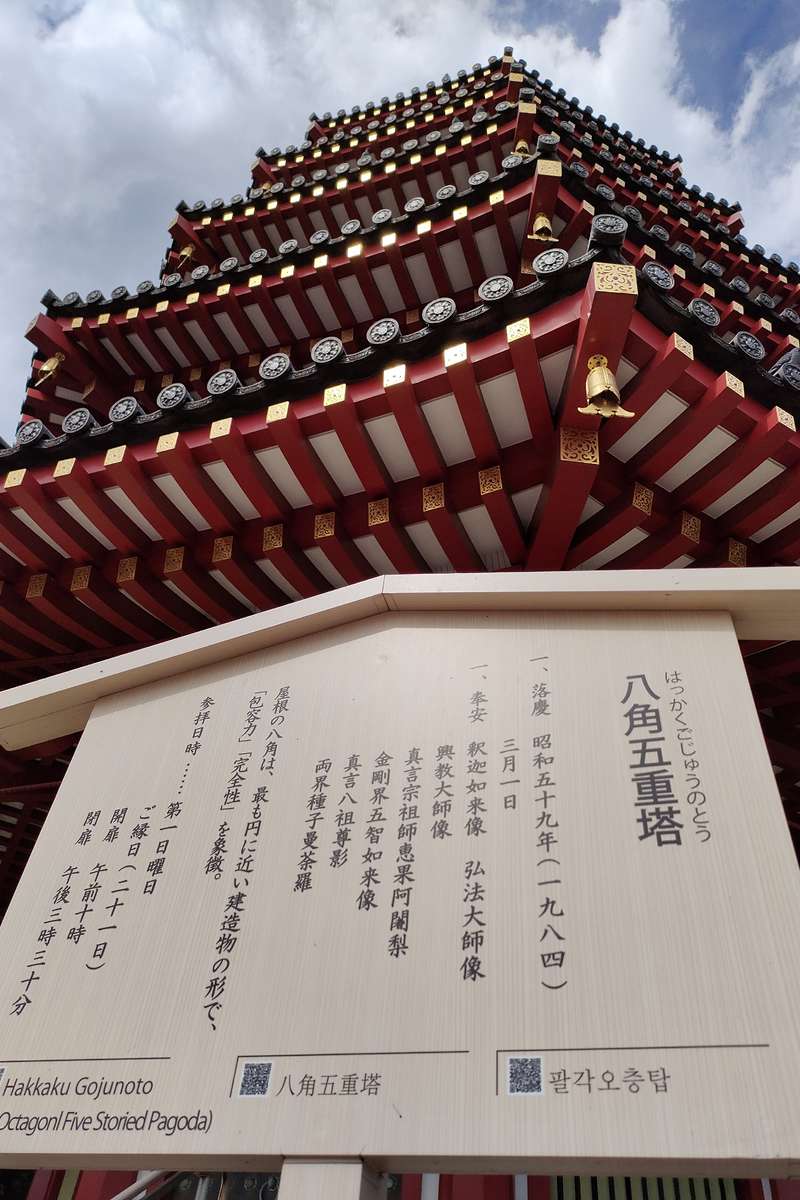 はっかくごじゅうのとう
八角五重塔
一、落慶 昭和五十九年(一九八四)
三月一日
一、奉安 釈迦如来像 弘法大師像
興教大師像
真言宗祖師恵果阿闍梨
金剛界五智如来像
真言八祖尊影
両界種子曼荼羅
屋根の八角は、最も円に近い建造物の形で、
「包容力」「完全性」を象徴。
参拝日時……第一日曜日
ご縁日(二十一日)
開扉 午前十時
閉扉 午後三時三十分
Hakkaku Gojunoto
Octagonl Five Storied Pagoda)
八角五重塔
팔각오층탑